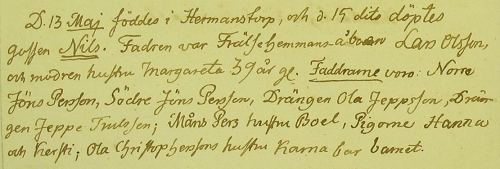 D. 13 Maj föddes i Hermanstorp, och d. 15 dito döptes
gossen Nils. Fadren var Frälsehemmans åboen Lars Olsson,
och modren hustru Margareta 39 år gl. Faddrarne voro: Norre
Jöns Persson, Södre Jöns Persson, Drängen Ola Jeppsson, Drän-
gen Jeppe Trulsson; Måns Pers hustru Boel, Pigorne Hanna
och Kersti; Ola Christophersons hustru Karna bar barnet.